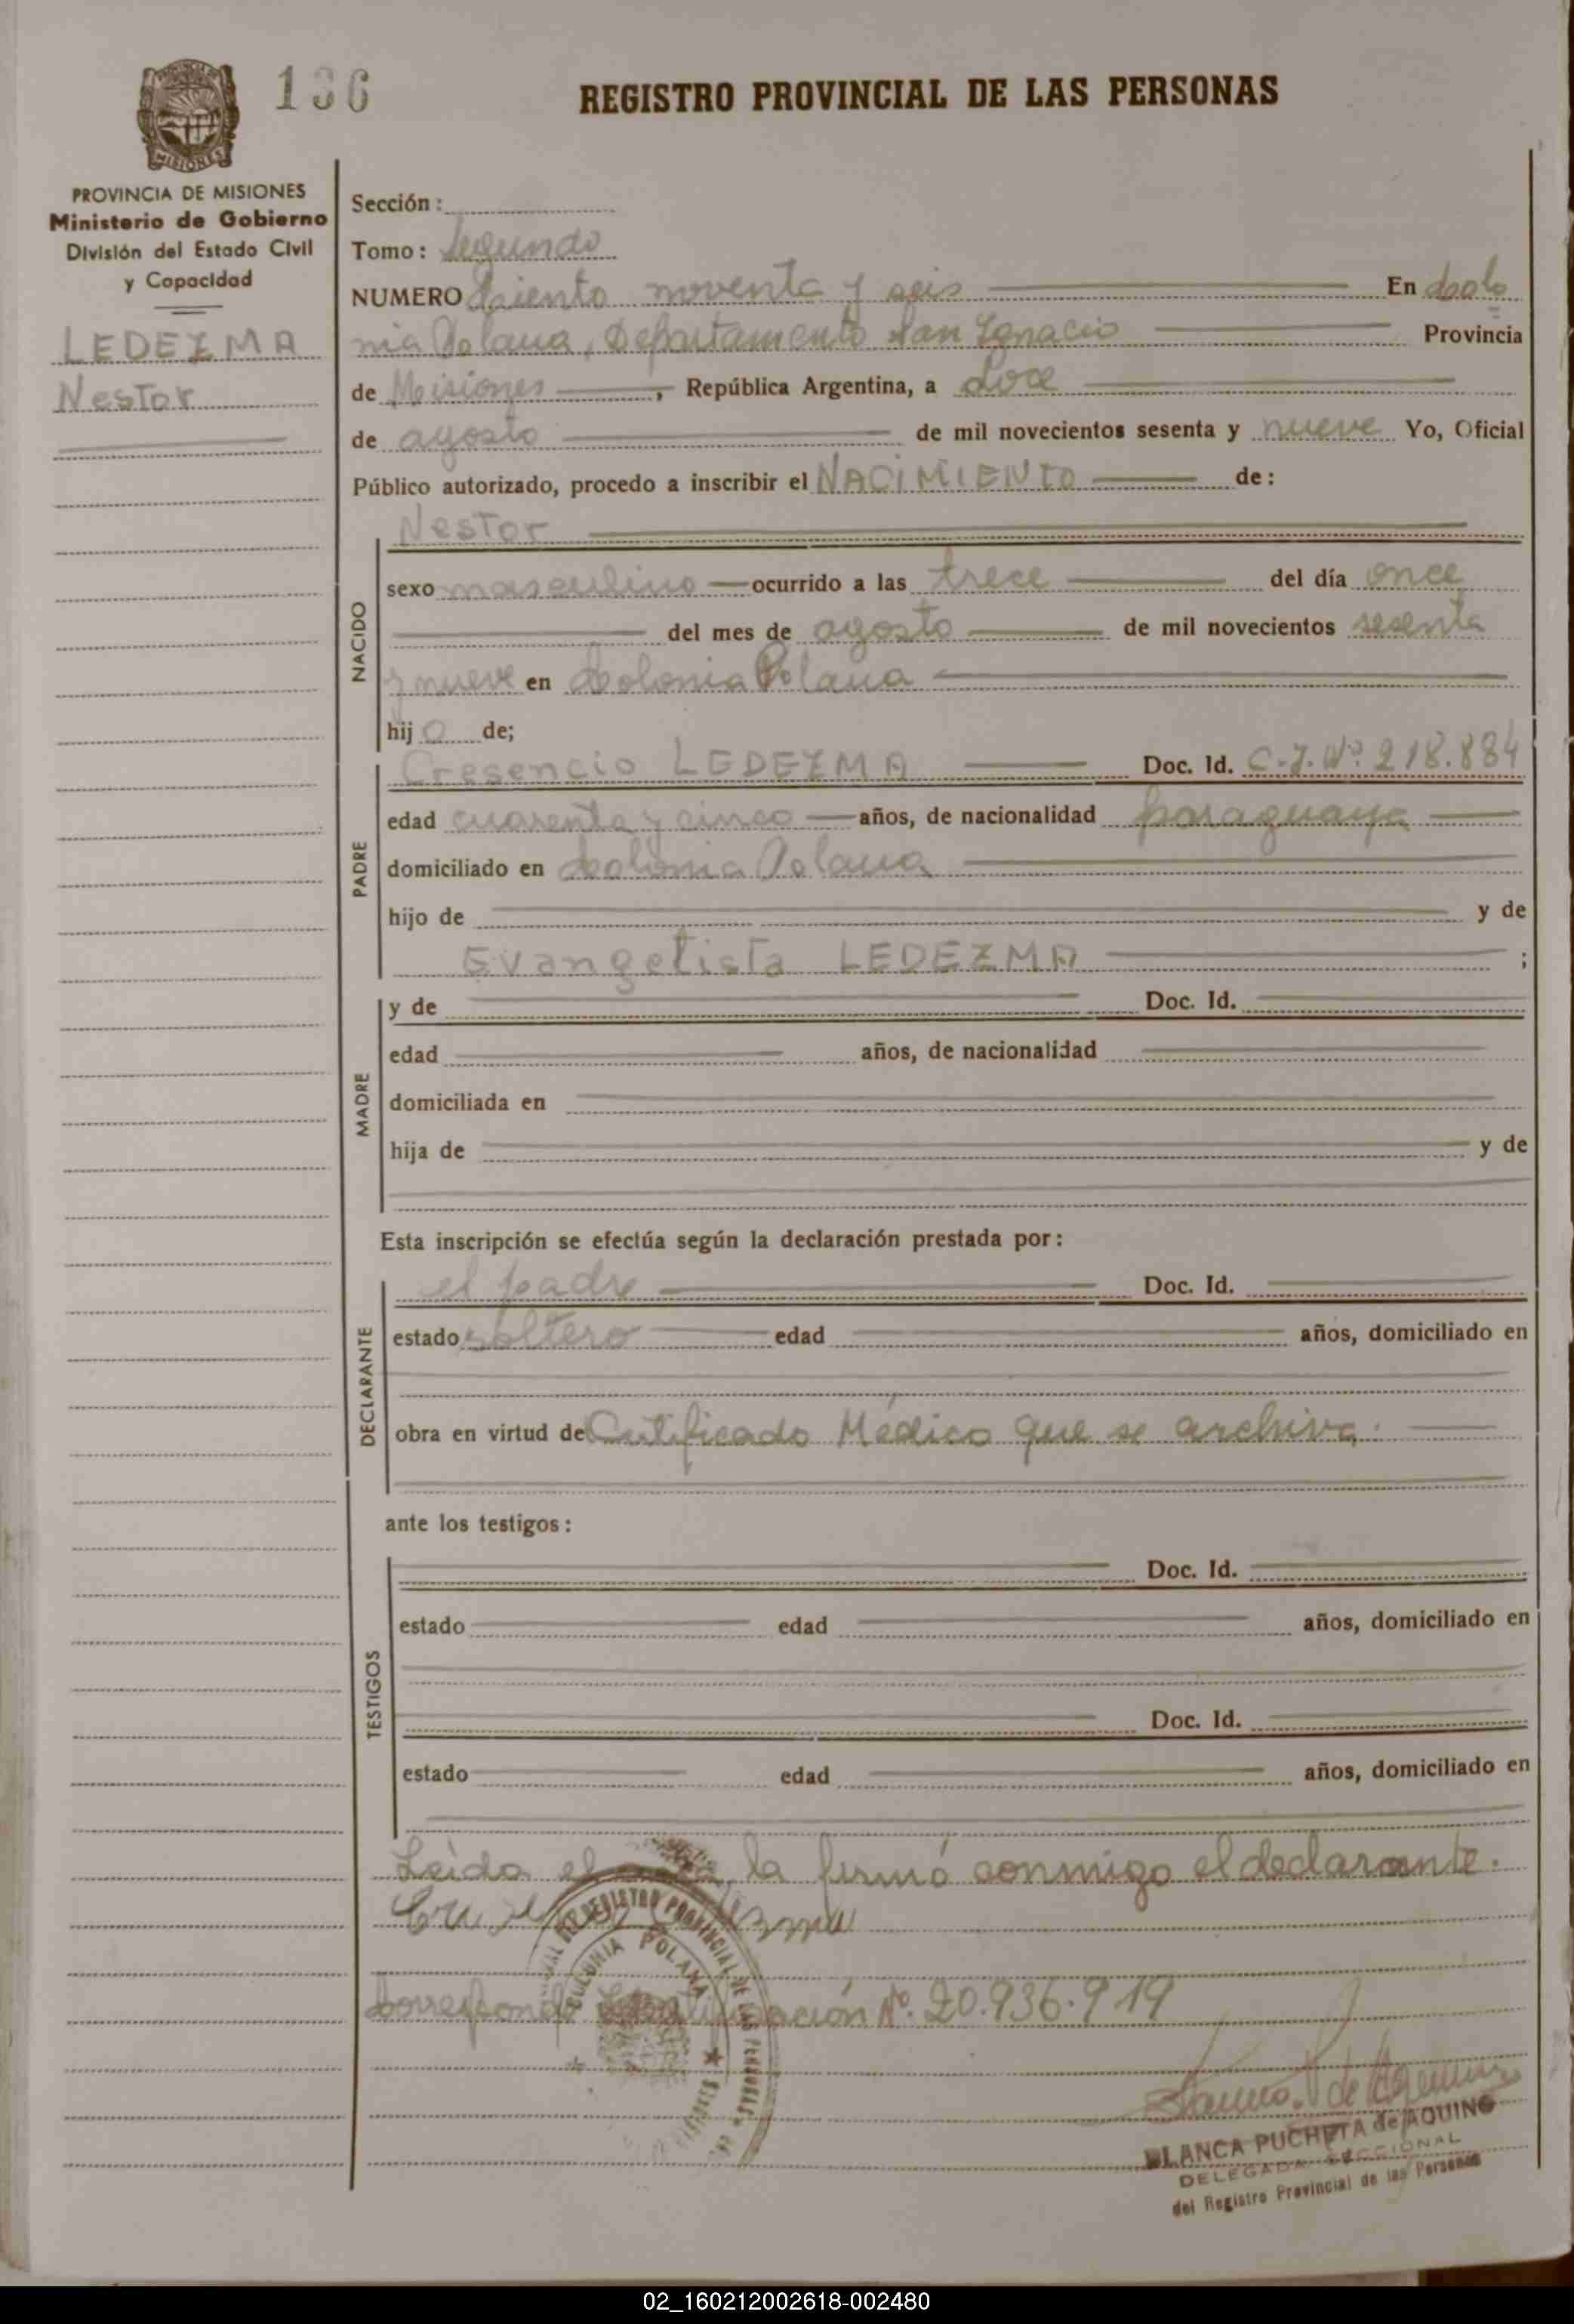 136
REGISTRO PROVINCIAL DE LAS PERSONAS
MISIONES
PROVINCIA DE MISIONES
Ministerio de Gobierno
División del Estado Civil
y Capacidad
LEDEZMA
Nestor
Sección :
Tomo : Segundo
NUMERO Ciento noventa y seis En Colo
nia Polana, Departamento San Ignacio Provincia
de Misiones, República Argentina, a doce
de agosto de mil novecientos sesenta y nueve Yo, Oficial
Público autorizado, procedo a inscribir el NACIMIENTO de :
Nestor
NACIDO
sexo masculino ocurrido a las trece del día once
del mes de agosto de mil novecientos sesenta
y nueve en Colonia Polana
hij o de;
PADRE
Cresencio LEDEZMA Doc. Id. C.I. Nº 218.884
edad cuarenta y cinco años, de nacionalidad paraguaya
domiciliado en Colonia Polana
hijo de y de
Evangelista LEDEZMA ;
MADRE
y de Doc. Id.
edad años, de nacionalidad
domiciliada en
hija de y de
Esta inscripción se efectúa según la declaración prestada por :
DECLARANTE
el padre Doc. Id.
estado soltero edad años, domiciliado en
obra en virtud de Certificado Médico que se archiva.
ante los testigos :
TESTIGOS
Doc. Id.
estado edad años, domiciliado en
Doc. Id.
estado edad años, domiciliado en
Leída el la firmó conmigo el declarante.
REGISTRO PROVINCIAL DE LAS PERSONAS
COLONIA POLANA
Corresponde Nº. 20.936.919
BLANCA PUCHETA de AQUINO
DELEGADA SECCIONAL
del Registro Provincial de las Personas
02_160212002618-002480